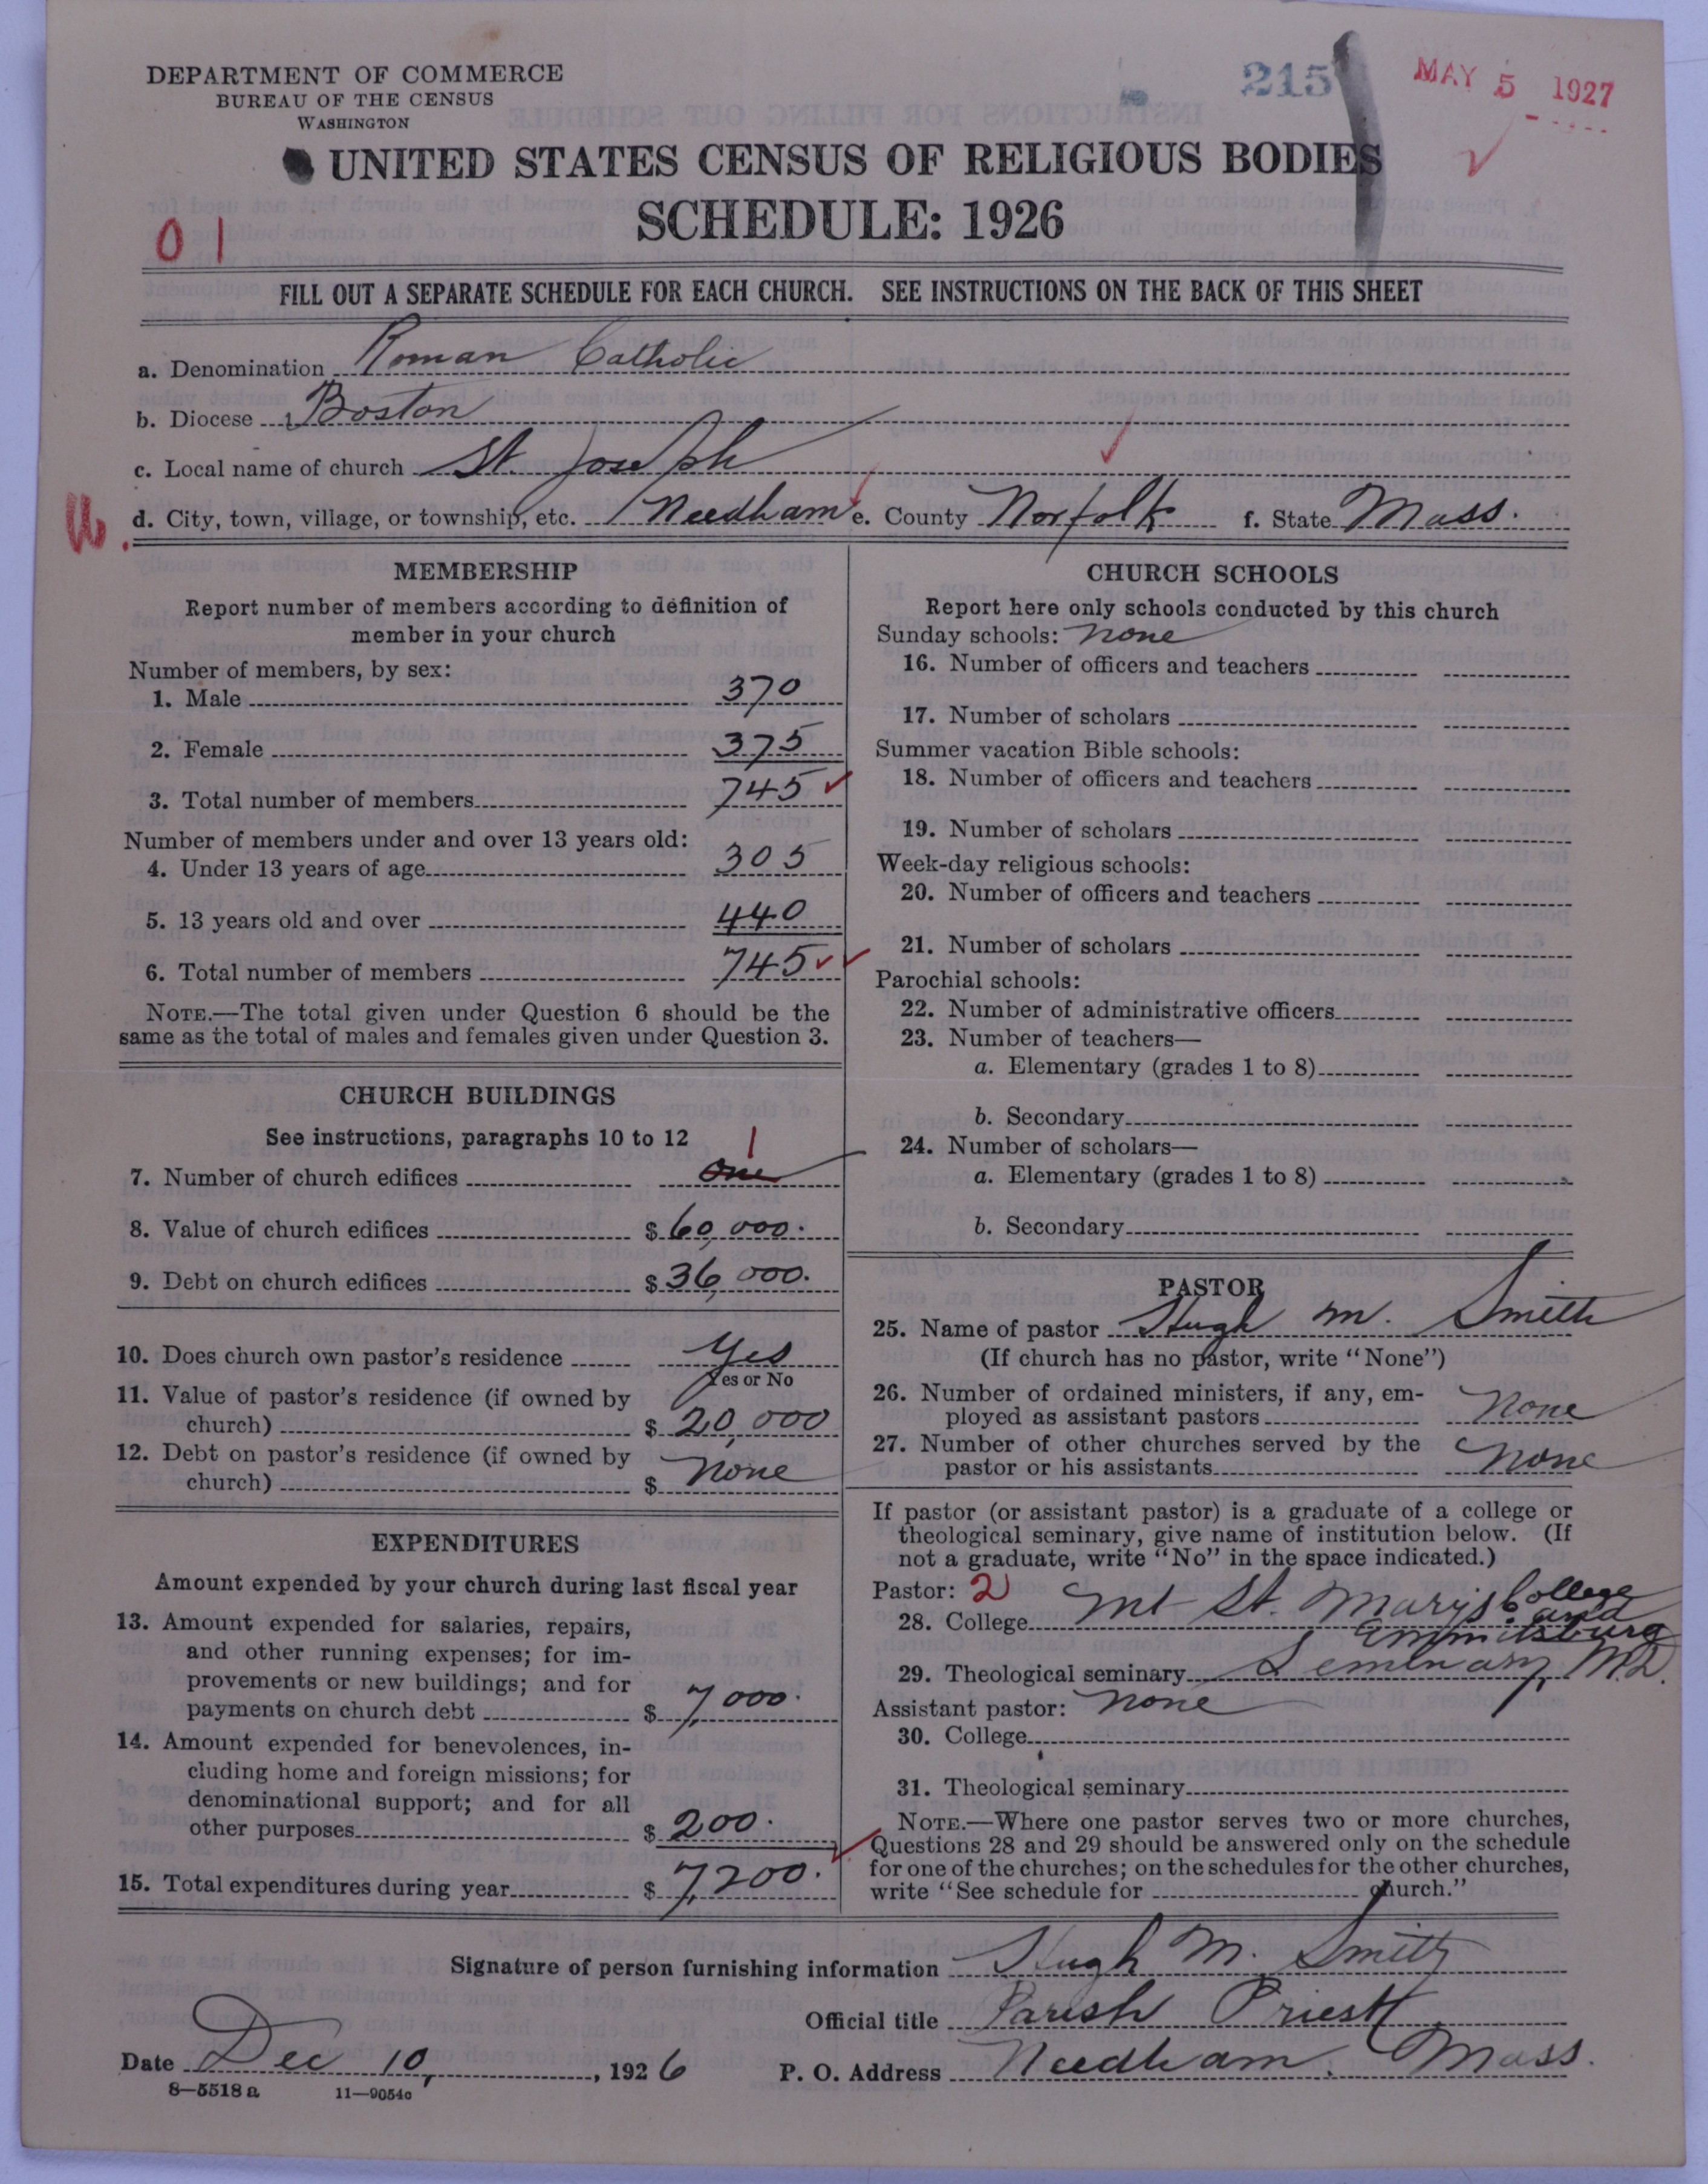 DEPARTMENT OF COMMERCE
BUREAU OF THE CENSUS
WASHINGTON
215
MAY 5 1927
UNITED STATES CENSUS OF RELIGIOUS BODIES
SCHEDULE: 1926
01
FILL OUT A SEPARATE SCHEDULE FOR EACH CHURCH. SEE INSTRUCTIONS ON THE BACK OF THIS SHEET
a. Denomination Roman Catholic
b. Diocese Boston
c. Local name of church St. Joseph
d. City, town, village, or township, etc. Needham e. County Norfolk f. State Mass.
MEMBERSHIP
Report number of members according to definition of
member in your church
Number of members, by sex:
1. Male 370
2. Female 375
3. Total number of members 745
Number of members under and over 13 years old:
4. Under 13 years of age 305
5. 13 years old and over 440
6. Total number of members 745
NOTE.—The total given under Question 6 should be the
same as the total of males and females given under Question 3.
CHURCH BUILDINGS
See instructions, paragraphs 10 to 12
1
7. Number of church edifices One
8. Value of church edifices $ 60,000.
9. Debt on church edifices $ 36,000.
10. Does church own pastor's residence Yes
Yes or No
11. Value of pastor's residence (if owned by
church) $ 20,000
12. Debt on pastor's residence (if owned by
church) $ None
EXPENDITURES
Amount expended by your church during last fiscal year
13. Amount expended for salaries, repairs,
and other running expenses; for im-
provements or new buildings; and for
payments on church debt $ 7,000.
14. Amount expended for benevolences, in-
cluding home and foreign missions; for
denominational support; and for all
other purposes $ 200.
15. Total expenditures during year $ 7,200.
CHURCH SCHOOLS
Report here only schools conducted by this church
Sunday schools: None
16. Number of officers and teachers
17. Number of scholars
Summer vacation Bible schools:
18. Number of officers and teachers
19. Number of scholars
Week-day religious schools:
20. Number of officers and teachers
21. Number of scholars
Parochial schools:
22. Number of administrative officers
23. Number of teachers—
a. Elementary (grades 1 to 8)
b. Secondary
24. Number of scholars—
a. Elementary (grades 1 to 8)
b. Secondary
PASTOR
25. Name of pastor Hugh M. Smith
(If church has no pastor, write "None")
26. Number of ordained ministers, if any, em-
ployed as assistant pastors None
27. Number of other churches served by the
pastor or his assistants None
If pastor (or assistant pastor) is a graduate of a college or
theological seminary, give name of institution below. (If
not a graduate, write "No" in the space indicated.)
Pastor: 2
28. College Mt St. Mary's College and
Emmitsburg
29. Theological seminary Seminary, Md.
Assistant pastor: None
30. College
31. Theological seminary
NOTE.—Where one pastor serves two or more churches,
Questions 28 and 29 should be answered only on the schedule
for one of the churches; on the schedules for the other churches,
write "See schedule for church."
Signature of person furnishing information Hugh M. Smith
Official title Parish Priest
Date Dec 10, 1926 P. O. Address Needham, Mass.
8—5518 a 11—9054c